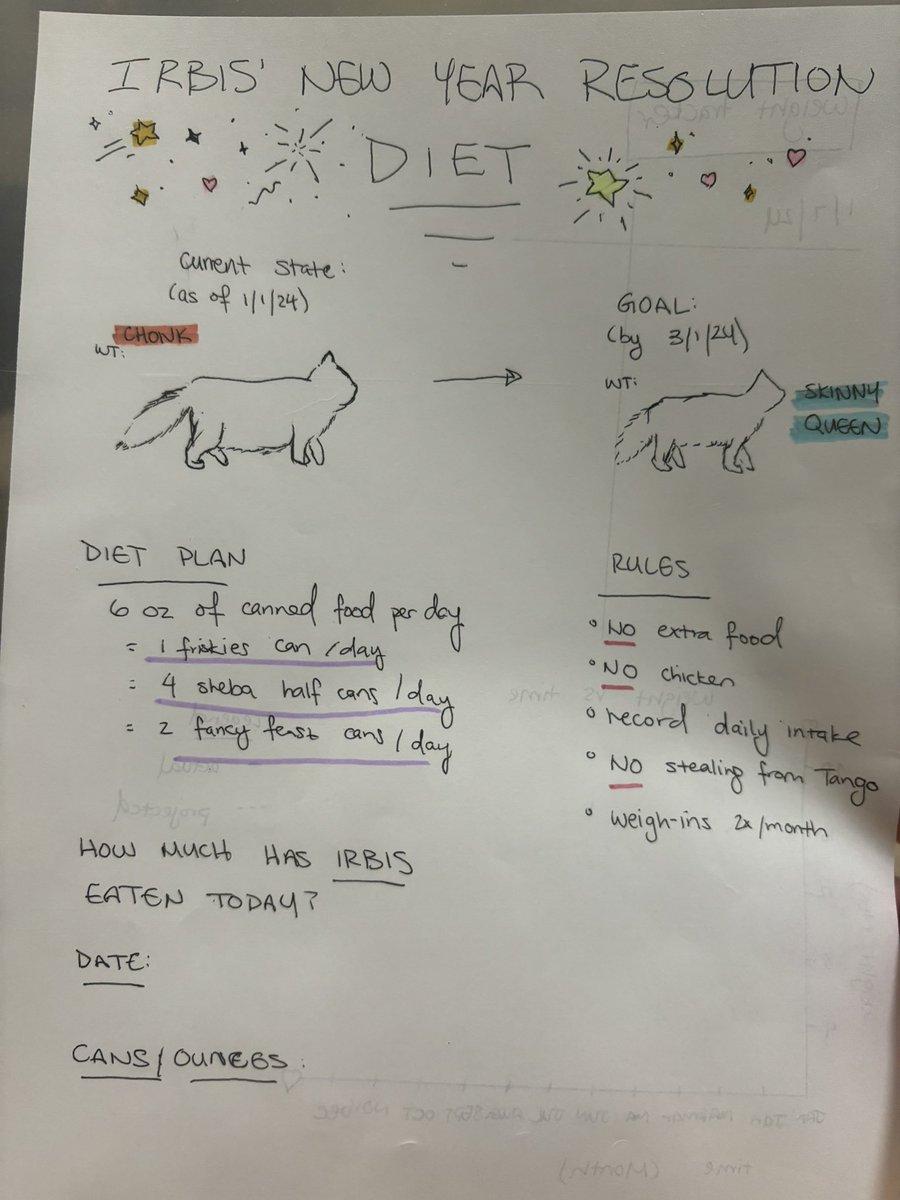 IRBIS' NEW YEAR RESOLUTION
DIET
Current State:
(as of 1/1/24)
CHONK
WT:
GOAL:
(by 3/1/24)
WT:
SKINNY
QUEEN
DIET PLAN
6 oz of canned food per day
= 1 friskies can /day
= 4 sheba half cans / day
= 2 fancy feast cans / day
RULES
° NO extra food
° NO chicken
° record daily intake
° NO stealing from Tango
° weigh-ins 2x/month
HOW MUCH HAS IRBIS
EATEN TODAY?
DATE:
CANS/OUNCES:
weight tracker
1/7/24
weight vs time
legend
actual
projected
time (Month)